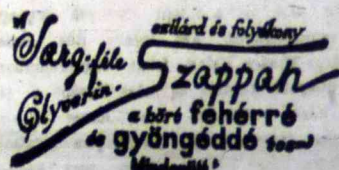 A
Sarg-féle
Glyverin-
szilárd és folyékony
Szappan
a bőrt fehérré
és gyöngéddé teszi